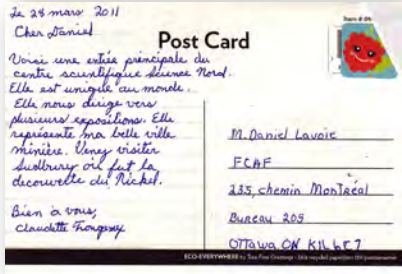 Le 28 mars 2011
Cher Daniel
Post Card
Voici une entrée principale du
centre scientifique Science Nord.
Elle est unique au monde.
Elle nous dirige vers
plusieurs expositions. Elle
représente ma belle ville
minière. Venez visiter
Sudbury où fut la
decouverte du Nickel.
Bien à vous,
Claudette
M. Daniel Lavoie
FCAF
235, chemin Montréal
Bureau 205
OTTawa, ON K1L 6C7
ECO-EVERYWHERE by Tree Free Greetings